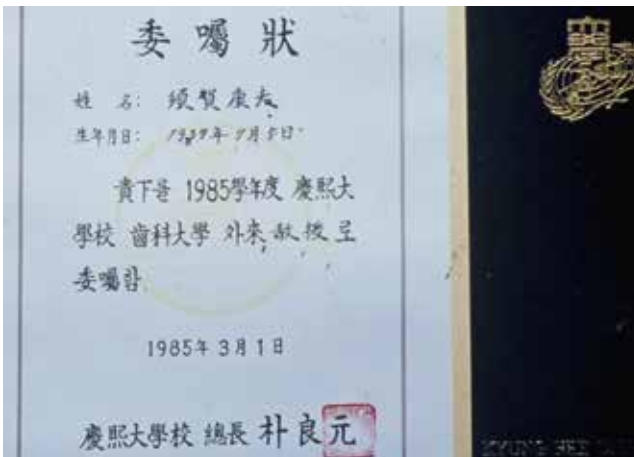 委囑狀
姓 名: 須賀康夫
生年月日: 19 年 7月 日
貴下를 1985學年度 慶熙大
學校 齒科大學 外來 敎授로
委囑함.
1985年 3月 1日
慶熙大學校 總長 朴良元
KYUNG HEE